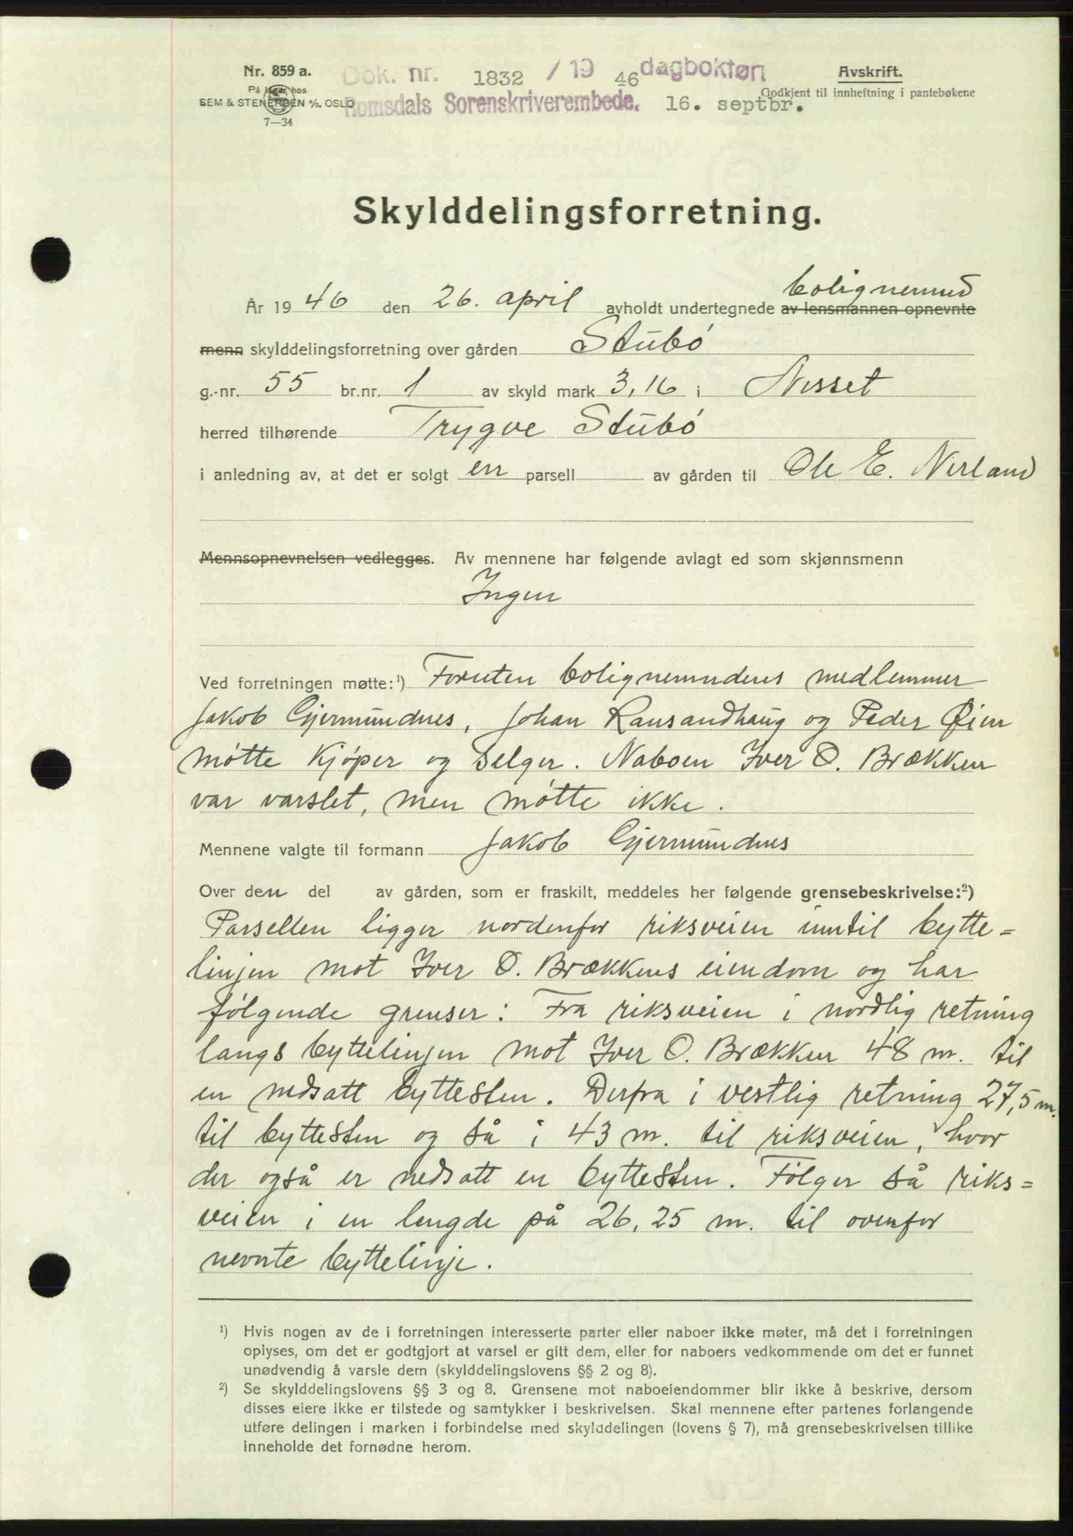 Nr. 859 a.
På lager hos
SEM & STENERSEN A/S, OSLO
7—34
Dok. nr. 1832 / 19 46 dagbokført
Romsdals Sorenskriverembede. 16. septbr.
Avskrift.
Godkjent til innheftning i pantebøkene
Skylddelingsforretning.
bolignemnd
År 1946 den 26. april avholdt undertegnede av lensmannen opnevnte
menn skylddelingsforretning over gården Stubö
g.-nr. 55 br.nr. 1 av skyld mark 3,16 i Nesset
herred tilhørende Trygve Stubö
i anledning av, at det er solgt en parsell av gården til Ole E. Nerland
Mennsopnevnelsen vedlegges. Av mennene har følgende avlagt ed som skjønnsmenn
Ingen
Ved forretningen møtte:¹) Foruten bolignemndens medlemmer
Jakob Gjermundnes, Johan Ransandhaug og Peder Øien
møtte kjøper og selger. Naboen Iver O. Brækken
var varslet, men møtte ikke.
Mennene valgte til formann Jakob Gjermundnes
Over den del av gården, som er fraskilt, meddeles her følgende grensebeskrivelse:²)
Parsellen ligger nordenfor riksveien inntil bytte=
linjen mot Iver O. Brækkens eiendom og har
følgende grenser: Fra riksveien i nordlig retning
langs byttelinjen mot Iver O. Brækken 48 m. til
en nedsatt byttesten. Derfra i vestlig retning 27,5 m.
til byttesten og så i 43 m. til riksveien, hvor
der også er nedsatt en byttesten. Følger så riks=
veien i en lengde på 26,25 m. til ovenfor
nevnte byttelinje.
¹) Hvis nogen av de i forretningen interesserte parter eller naboer ikke møter, må det i forretningen
oplyses, om det er godtgjort at varsel er gitt dem, eller for naboers vedkommende om det er funnet
unødvendig å varsle dem (skylddelingslovens §§ 2 og 8).
²) Se skylddelingslovens §§ 3 og 8. Grensene mot naboeiendommer blir ikke å beskrive, dersom
disses eiere ikke er tilstede og samtykker i beskrivelsen. Skal mennene efter partenes forlangende
utføre delingen i marken i forbindelse med skylddelingen (lovens § 7), må grensebeskrivelsen tillike
inneholde det fornødne herom.